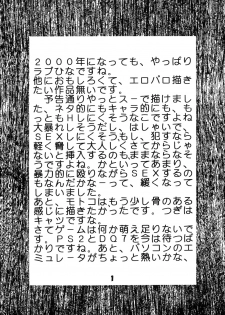 ２０００年になっても、やっぱり
ラブひなですね。
他におもしろくて、エロパロ描き
たい作品無いです。
予告通りやっとスーで描けまし
た、ネタ的にもキャラ的にも、も
っともＨしにくそうなこですよね
大暴れしそうだし、はしゃいで、
大ＳＥＸしにくそうもし、犯すなら
軽く脅して大人しくさしてからじゃ
ないと挿入するのもままならなそ
うですよね。かといって、あまり
暴力的に殴りながらＳＥＸするの
もなんだかなーって、緩くなって
しまいました。
あと、モトコはもう少し骨のある
感じに描きたかったです。つぎは
キャツですな。
さてゲームは何か萌え足りないで
す。ＰＳ２とＤＱ７を今は待つば
かりです。あと、パソコンのエ
ミュレータがちょっと熱いかな、